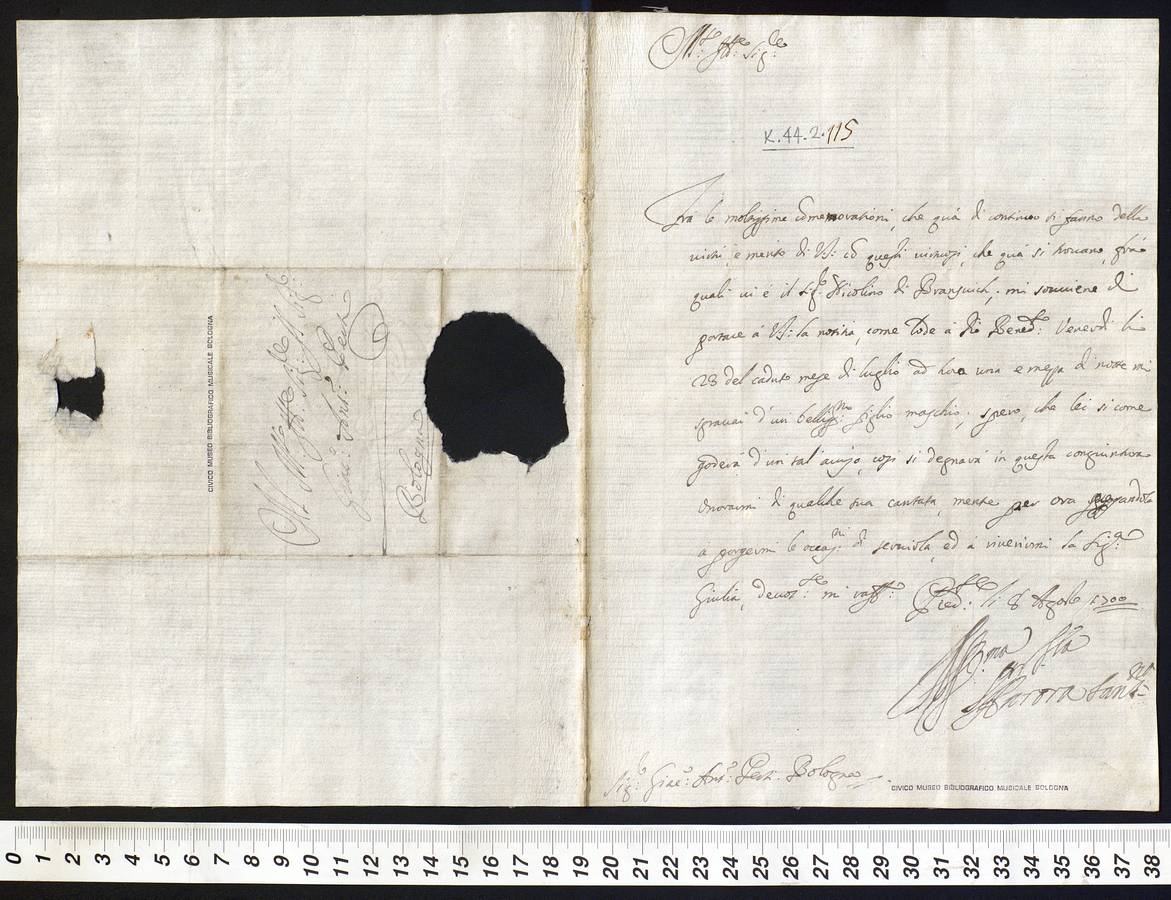 Al Molto Ill.re Sig.r Sig.r
Giac.o Ant.o Perti
Bologna
CIVICO MUSEO BIBLIOGRAFICO MUSICALE BOLOGNA
M.to Ill.re Sig.re
K.44.2.115
Fra le moltissime comemorationi, che quà di continuo si fanno della
virtù, e merito di V.S: co questi virtuosi, che quà si trovano, frà
quali vi è il Sig.r Nicolino di Bransuich, mi souviene di
portare à V.S: la notitia, come lode à Dio Bened.to: Venerdì li
23 del caduto mese di luglio ad hora una e mezza di notte mi
sgravai d'un belliss.mo figlio maschio; spero, che lei si come
goderà d'un tal aviso, così si degnarà in questa congiuntura
onorarmi di qualche sua cantata, mentre per ora pregandola
a porgermi le occas.ni di servirla, ed à riverirmi la Sig.a
Giulia, devot.te mi raff.o Li 8 Agosto 1700
Aff.ma
Aurora San
Sig.r Giac.o Ant.o Perti Bologna
CIVICO MUSEO BIBLIOGRAFICO MUSICALE BOLOGNA
0 1 2 3 4 5 6 7 8 9 10 11 12 13 14 15 16 17 18 19 20 21 22 23 24 25 26 27 28 29 30 31 32 33 34 35 36 37 38